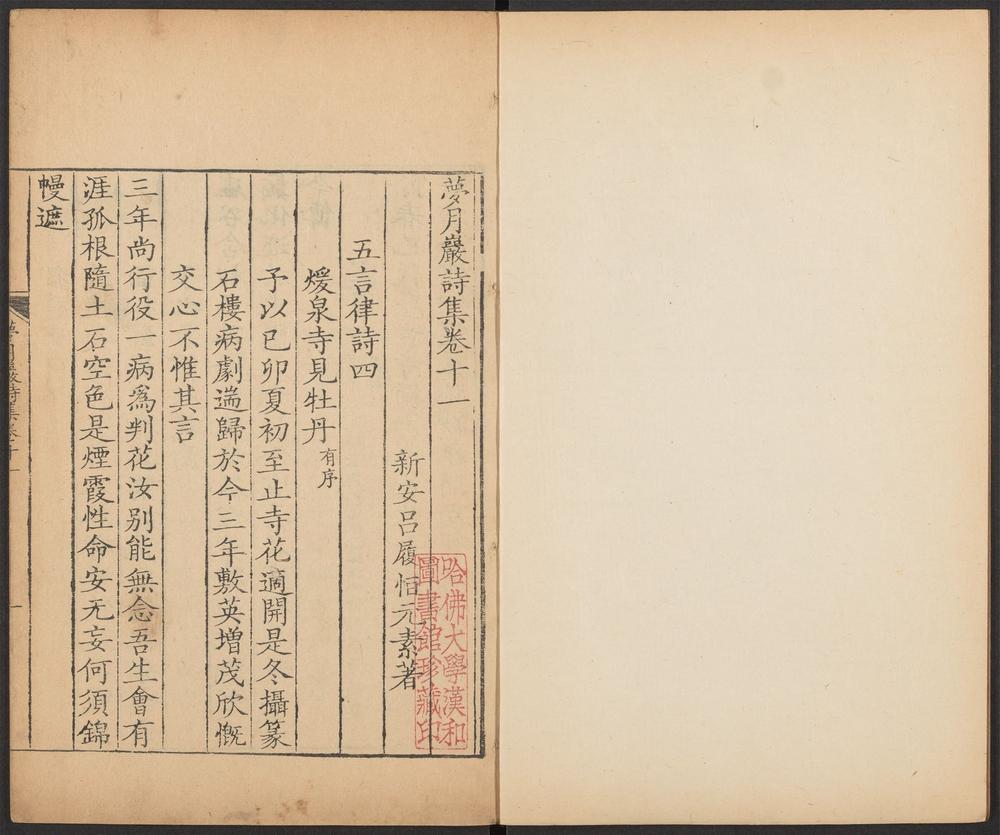 夢月巖詩集卷十一
新安呂履恒元素著
五言律詩四
煖泉寺見牡丹有序
予以已卯夏初至止寺花適開是冬攝篆
石樓病劇遄歸於今三年敷英增茂欣慨
交心不惟其言
三年尚行役一病爲判花汝别能無念吾生會有
涯孤根隨土石空色是煙霞性命安无妄何須錦
幔遮
夢月巖詩集卷十一
一
哈佛大學漢和
圖書館珍藏印